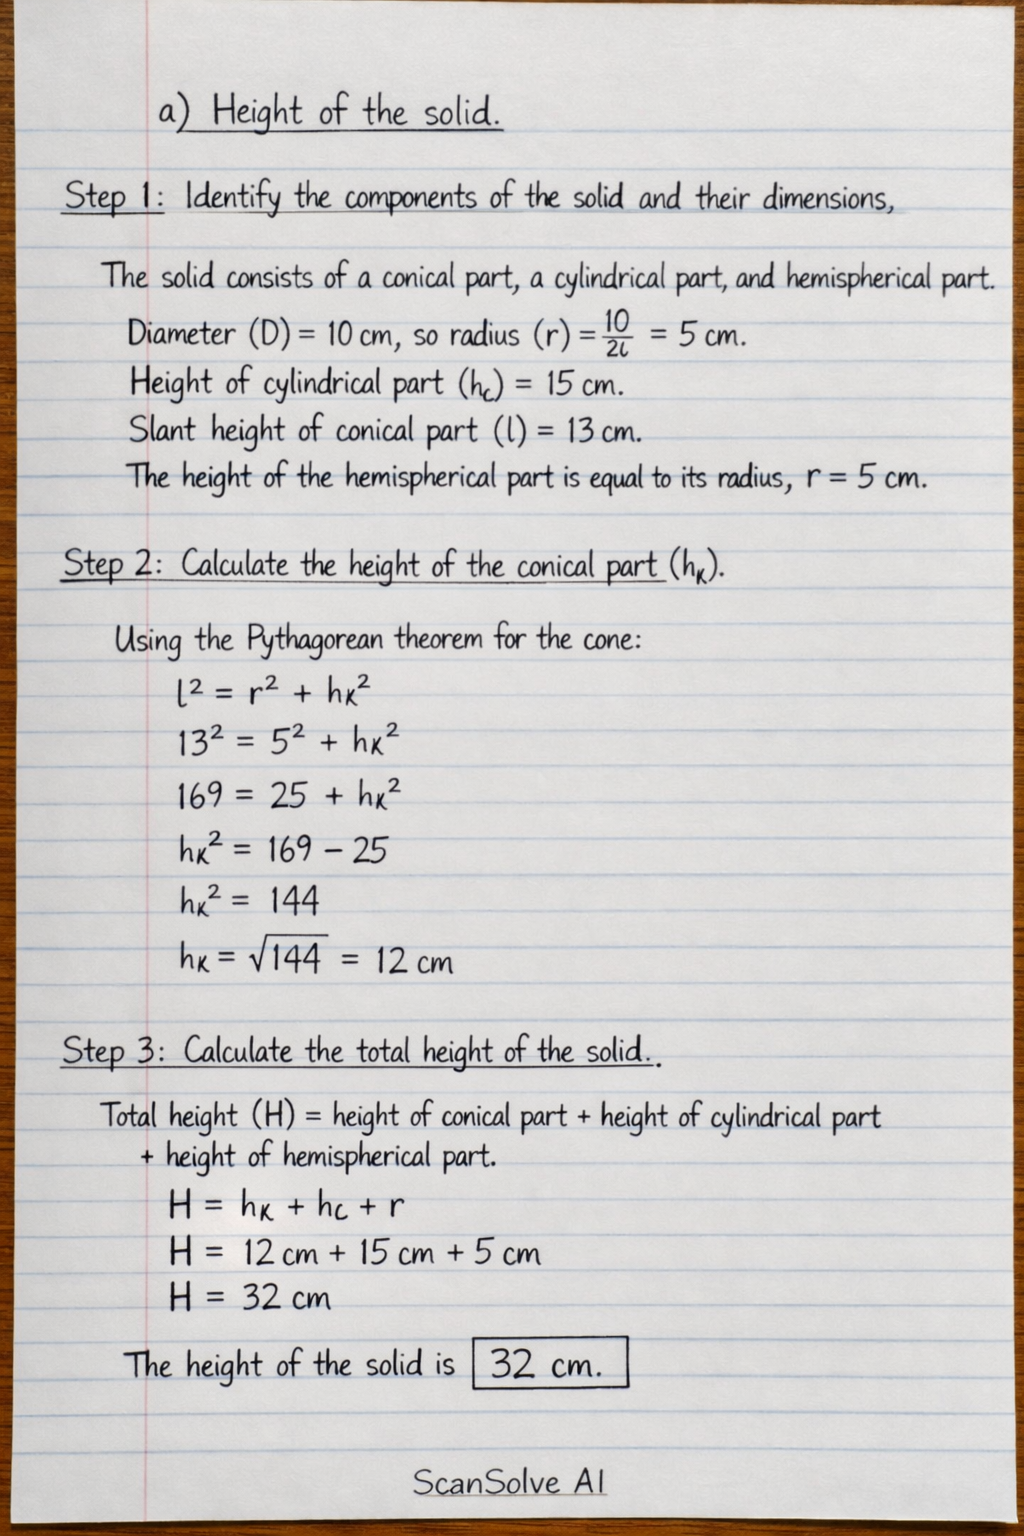 a) Height of the solid.
Step 1: Identify the components of the solid and their dimensions,
The solid consists of a conical part, a cylindrical part, and hemispherical part.
Diameter (D) = 10 cm, so radius (r) = 10/2ι = 5 cm.
Height of cylindrical part (h_c) = 15 cm.
Slant height of conical part (l) = 13 cm.
The height of the hemispherical part is equal to its radius, r = 5 cm.
Step 2: Calculate the height of the conical part (h_K).
Using the Pythagorean theorem for the cone:
l² = r² + h_K²
13² = 5² + h_K²
169 = 25 + h_K²
h_K² = 169 − 25
h_K² = 144
h_K = √144 = 12 cm
Step 3: Calculate the total height of the solid..
Total height (H) = height of conical part + height of cylindrical part
+ height of hemispherical part.
H = h_K + h_c + r
H = 12 cm + 15 cm + 5 cm
H = 32 cm
The height of the solid is 32 cm.
ScanSolve AI